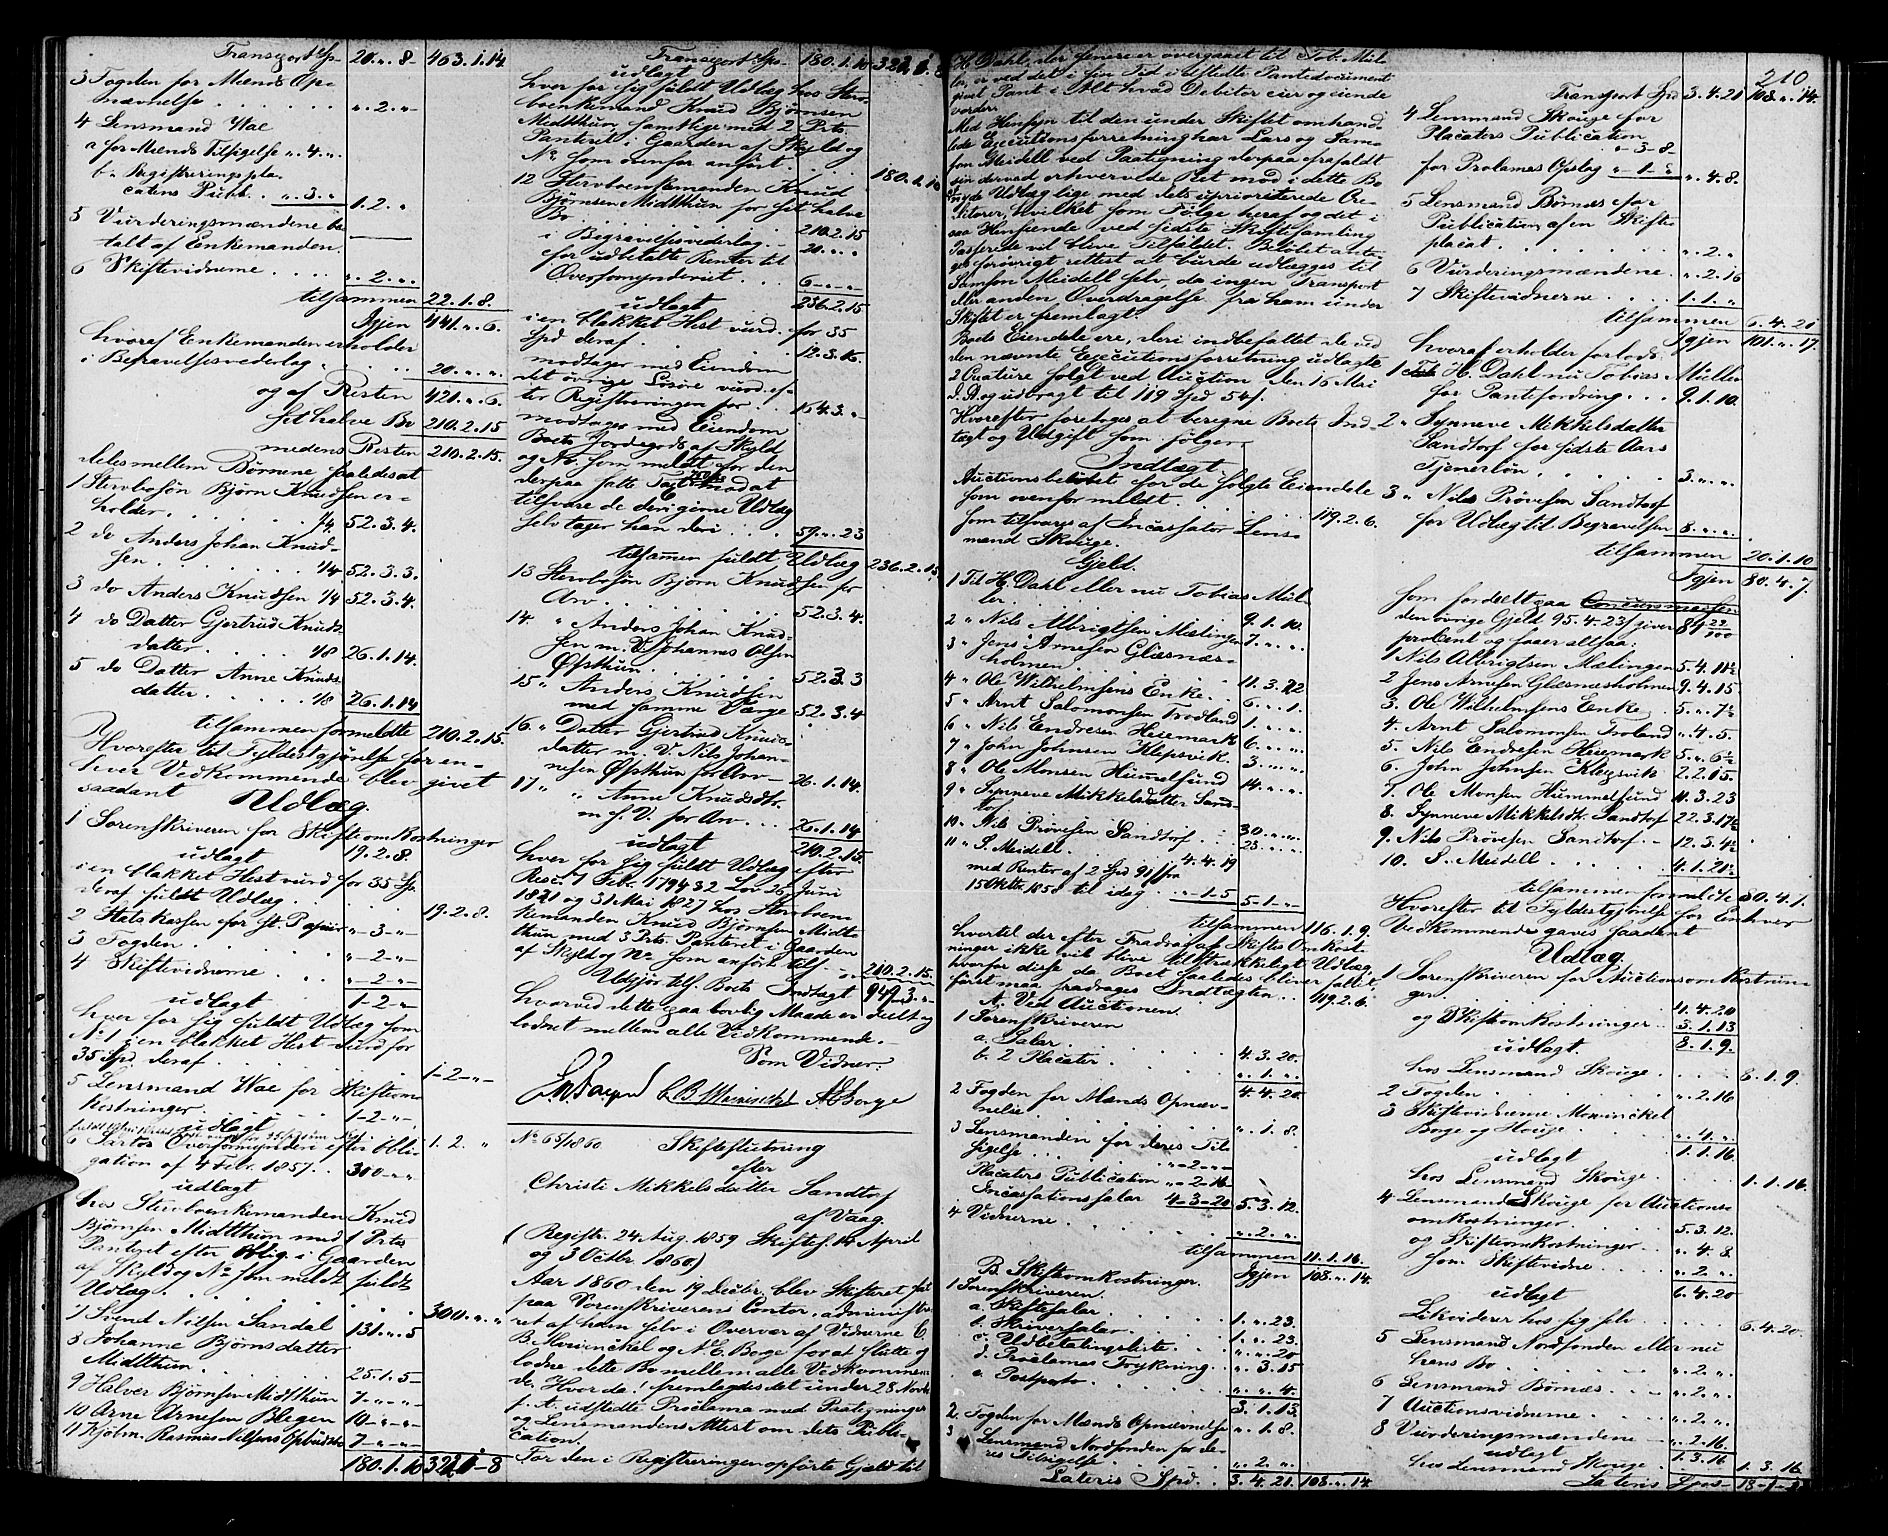 Transport Sp. 20.„.8 463.1.14.
3 Fogden for Mænds Op-
nævnelse . . . . „.2.„
4 Lensmand Wae
a for Mænds Tilsigelse „.4.„.
b. Registreringspla-
catens Publ. . „.3.„ 1.2.„
5 Vurderingsmændene be-
talt af Enkemanden
6 Skiftevidnerne . . . . „.2.„.
tilsammen 22.1.8.
Igjen 441.„.6.
hvoraf Enkemanden erholder
i Begravelsesvederlag . . . . 20.„.„.
og af Resten 421.„.6.
sit halve Bo 210.2.15
medens Resten 210.2.15.
deles mellem Børnene saaledes at
1 Stervbosøn Bjørn Knudsen er-
holder . . . . ¼ 52.3.4.
2 do Anders Johan Knud-
sen . . . . ¼ 52.3.3.
3 do Anders Knudsen ¼ 52.3.4.
4 do Datter Gjertrud Knuds-
datter . . . . 1/8 26.1.14.
5 do Datter Anne Knuds-
datter . . . . 1/8 26.1.14
tilsammen formeldte 210.2.15.
Hvorefter til Fyldestgjørelse for en-
hver Vedkommende blev givet
saadant Udlæg.
1 Sorenskriveren for Skifteomkostninger
19.2.8.
udlagt
i en blakket Hest vurd for 35 Sp.
deraf fuldt Udlæg . . . . 19.2.8.
2 Statskassen for St. Papiir „-3-„
3 Fogden . . . . „-2-„
4 Skiftevidnerne . . „-2-„
1-2-„
udlagt
hver for sig fuldt Udlæg som
No 1 i en blakket Hest vurd for
35 Spd. deraf . . . . 1-2-„
5 Lensmand Wae for Skifteom-
kostninger . . . . 1-2-„.
udlagt
1.2.„
6 Overformynderi efter Obli-
gation af 4 Febr. 1857. . 300-„-„
udlagt
hos Stervboenkemanden Knud
Bjørnsen Midtthun med 1 Prts
Panteret efter Oblig. i Gaarden
af Skyld og No som meldt fuldt
Udlæg . . . . 300.„.„
7 Svend Nilsen Sandal 131.„.5
8 Johanne Bjørnsdatter
Midtthun . . . . 25.1.5-
9 Halver Bjørnsen Midtthun 7-„-„
10 Arne Arnesen Blegen 10-„-„
11 Kjøbm. Rasmus Nilsens Opbudsbo 7-„-„
180.1.10 321.„-8
Transport Sp. 180.1.10 321.„.8
udlagt
hver for sig fuldt Udlæg hos Sterv-
boenkemand Knud Bjørnsen
Midtthun samtlige med 2 Prts.
Panteret i Gaarden af Skyld og
No som ovenfor anført . . 180.1.10
12 Stervboenkemanden Knud
Bjørnsen Midtthun for sit halve
Bo . . . . 210.2.15
i Begravelsesvederlag . . 20.„.„
for udbetalte Renter til
Overformynderiet . . . . 6-„-„
236.2.15
udlagt
i en blakket Hest vurd. for 35
Spd deraf . . . . 12.3.16.
modtager med Eiendom
det øvrige Løsøre vurd. ef-
ter Registreringen for . . 164.3.„
modtager med Eiendom
Boets Jordegods af Skyld
og No som meldt for den
derpaa satte Taxt mod at
tilsvare de deri givne Udlæg
selv tager han deri . . . 59.„.23
tilsammen fuldt Udlæg 236.2.15
13 Stervbosøn Bjørn Knudsen for
Arv . . . . 52.3.4.
14 „ Anders Johan Knud-
sen m. V. Johannes Olsen
Øfsthun . . . . 52.3.3
15 „ Anders Knudsen
med samme Værge 52.3.4
16 „ Datter Gjertrud Knuds-
datter m. V. Nils Johan-
nesen Øfsthun for Arv - 26.1.14.
17 „ „ Anne Knudsdtr.
m. s. V. for Arv . . . 26.1.14
210.2.15.
udlagt
hver for sig fuldt Udlæg efter
Resc. 7 Febr. 1794 § 2 Lov 26 Juni
1821 og 31 Mai 1827 hos Stervboen-
kemanden Knud Bjørnsen Midt-
thun med 3 Prts. Panteret i Gaarden
af Skyld og No som anført til . 210.2.15.
Udgjør tils. Boets Indtægt 949.3.„
hvorved dette paa lovlig Maade er deelt og
lodnet mellem alle Vedkommende.
Som Vidner.
C B Mowinckel A C Borge
No 65/1860 Skifteslutning
efter
Christi Mikkelsdatter Sandtorf
af Vaag.
(Registr. 24 Aug. 1859 Skiftes. 14 April
og 3 Octbr. 1860)
Aar 1860 den 19 Decbr. blev Skifteret sat
paa Sorenskriverens Contor, administre-
ret af ham selv i Overvær af Vidnerne C.
B. Mowinckel og A. C. Borge for at slutte og
lodne dette Bo mellem alle Vedkommen-
de. Hvor da: fremlagdes det under 28 Novbr
f. A. udstedte Proclama med Paategninger
og Lensmandens Attest om dets Publi-
cation.
For den i Registreringen opførte Gjæld til
H. Dahl, der senere er overgaaet til Tob. Mül-
ler, er ved det i sin Tid udstedte Pantedocument
givet Pant i Alt hvad Debitor eier og eiende
vorder.
Med Hensyn til den under Skiftet omhand-
lede Executionsforretning har Lars og Sam-
son Meidell ved Paategning derpaa frafaldt
sin derved erhvervede Ret mod i dette Bo
at nyde Udlæg lige med dets uprioriterede Cre-
ditorer, hvilket som Følge heraf og det i
saa Henseende ved sidste Skiftesamling
Passerede vil blive Tilfældet. Beløbet anta-
ges forøvrigt rettest at burde udlægges til
Samson Meidell selv, da ingen Transport
eller anden Overdragelse fra ham under
Skiftet er fremlagt.
Boets Eiendele ere, deri indbefattet de ud
den nævnte Executionsforretning udlagte
2 Creature solgt ved Auction den 16 Mai
d. A. og udbragt til 119 Spd 54 s.
Hvorefter foretages at beregne Boets Ind-
tægt og Udgift som følger.
Indtægt
Auctionsbeløbet for de solgte Eiendele
som ovenfor meldt . . . . 119.2.6.
som tilsvares af Incassator Lens-
mand Skouge.
Gjeld.
1 Til H. Dahl eller nu Tobias Mül-
ler . . . . 9.1.10.
2 „ Nils Albrigtsen Mælingen 7.„.„
3 „ Jens Arnesen Glæsnæs-
holmen . . . . 11.3.22
4 „ Ole Wilhelmsens Enke . . 6.„.1.
5 „ Arnt Salomonsen Trodland 1.„.„
6 „ Nils Endresen Hisemark 6.„.„
7 „ John Johnsen Klepsvik 3.„.„.
8 „ Ole Monsen Hummelsund 14.„.„
9 „ Synneve Mikkelsdatter Sand-
torf . . . . 30.„.„
10. „ Nils Prøvesen Sandtorf . . 23.„.„
11 „ S. Meidell . . 4.4.19
med Renter af 2 Spd 91 s fra
15 Oktbr. 1858 til idag . . „-1-5 5-1-„
tilsammen 116.1.9.
hvortil der efter Fradrag af Skiftes Omkost-
ninger ikke vil blive tilstrækkeligt Udlæg
hvorfor disse da Boet saaledes bliver fallit,
først maa fradrages Indtægten . . 119.2.6.
A. Ved Auctionen.
1 Sorenskriveren
a. Salær . . . . 4.3.20.
b. 2 Placater . . . . „.1.„.
4.4.20.
2 Fogden for Mænds Opnæv-
nelse . . . . „.1.8.
3 Lensmanden for deres Til-
sigelse . . . „-2-„
Placaters Publication „-2-16
Incassationssalær 4-3-20 5.3.12.
4 Vidnerne . . . . „.2.„.
tilsammen 11.1.16.
Igjen 108.„.14.
B. Skifteomkostninger
1 Sorenskriveren
a. Skiftesalær . . . . 1.„.23.
b. Skriversalær . . . . 1.„.23.
c. Udbetalingsliste . . „.„.20
d. Proclamas Trykning . . „.3.15
e. Postporto . . . . „.„.4.
3.1.13.
2. Fogden for Mænds Opnævnelse „.1.8.
3 Lensmand Nordfonden for de-
res Tilsigelse . . . . „.2.„.
Lateris Spd. . 3.4.21. 108.„.14.
210.
Transport Spd 3.4.21 108.„.14.
4 Lensmand Skouge for
Placaters Publication
„-3-8-
for Proclamas Opslag „-1-„ „.4.8.
5 Lensmand Børnæs for
Publication af en Skifte-
placat . . . . „.2.„
6 Vurderingsmændene . „.2.16
7 Skiftevidnerne . . . 1.1.„
tilsammen 6.4.21
Igjen 101.„.17.
hvoraf erholder forlods:
1 Til H. Dahl nu Tobias Müller
for Pantefordring . . . 9.1.10.
2 „ Synneve Mikkelsdatter
Sandtorf for sidste Aars
Tjenerløn . . . . 3.„.„
3 „ Nils Prøvesen Sandtorf
for Udlæg til Begravelsen 8.„.„.
tilsammen 20.1.10
Igjen 80.4.7.
som fordeelt paa Concursmassen
den øvrige Gjeld 95.4.23 s giver 84 29/100
procent og faaer altsaa:
1 Nils Albrigtsen Mælingen 5.4.11½
2 Jens Arnesen Glæsnæsholmen 9.4.15.
3. Ole Wilhelmsens Enke . 5.„.7½
4. Arnt Salomonsen Troland „.4.5.
5. Nils Endresen Hisemark 5.„.6½
6. John Johnsen Klepsvik 2.2.15.
7. Ole Monsen Hummelsund 11.3.23
8. Synneve Mikkelsdtr. Sandtorf 22.3.17½
9. Nils Prøvesen Sandtorf . - 12.3.4½
10. S. Meidell . . . 4.1.21½
tilsammen formeldte 80.4.7.
Hvorefter til Fyldestgjørelse for Enhver
Vedkommende gaves saadant
Udlæg.
1 Sorenskriveren for Auctionsomkostnin-
ger . . . . 4.4.20
og Skifteomkostninger . . 3.1.13
8.1.9.
udlagt.
hos Lensmand Skouge . . . . 8.1.9.
2 Fogden . . . . „.2.16
3 Skiftevidnerne Mowinckel
Borge og Houge . . . „.4.„.
1.1.16.
udlagt
hos Lensmand Skouge . . . . 1.1.16.
4 Lensmand Skouge for Auctions-
omkostninger . . . . 5.3.12.
og Skifteomkostninger . . „.4.8.
som Skiftevidne . . . . „.2.„
6.4.20
udlagt
Likviderer hos sig selv . . . . 6.4.20.
5 Lensmand Nordfonden eller nu
hans Bo . . . . „.2.„.
6 Lensmand Børnæs . . „.2.„.
7 Auctionsvidnerne . . „.2.„.
8 Vurderingsmændene - „.2.16.
1.3.16
udlagt
hos Lensmand Skouge . . . 1.3.16
Lateris Spd.